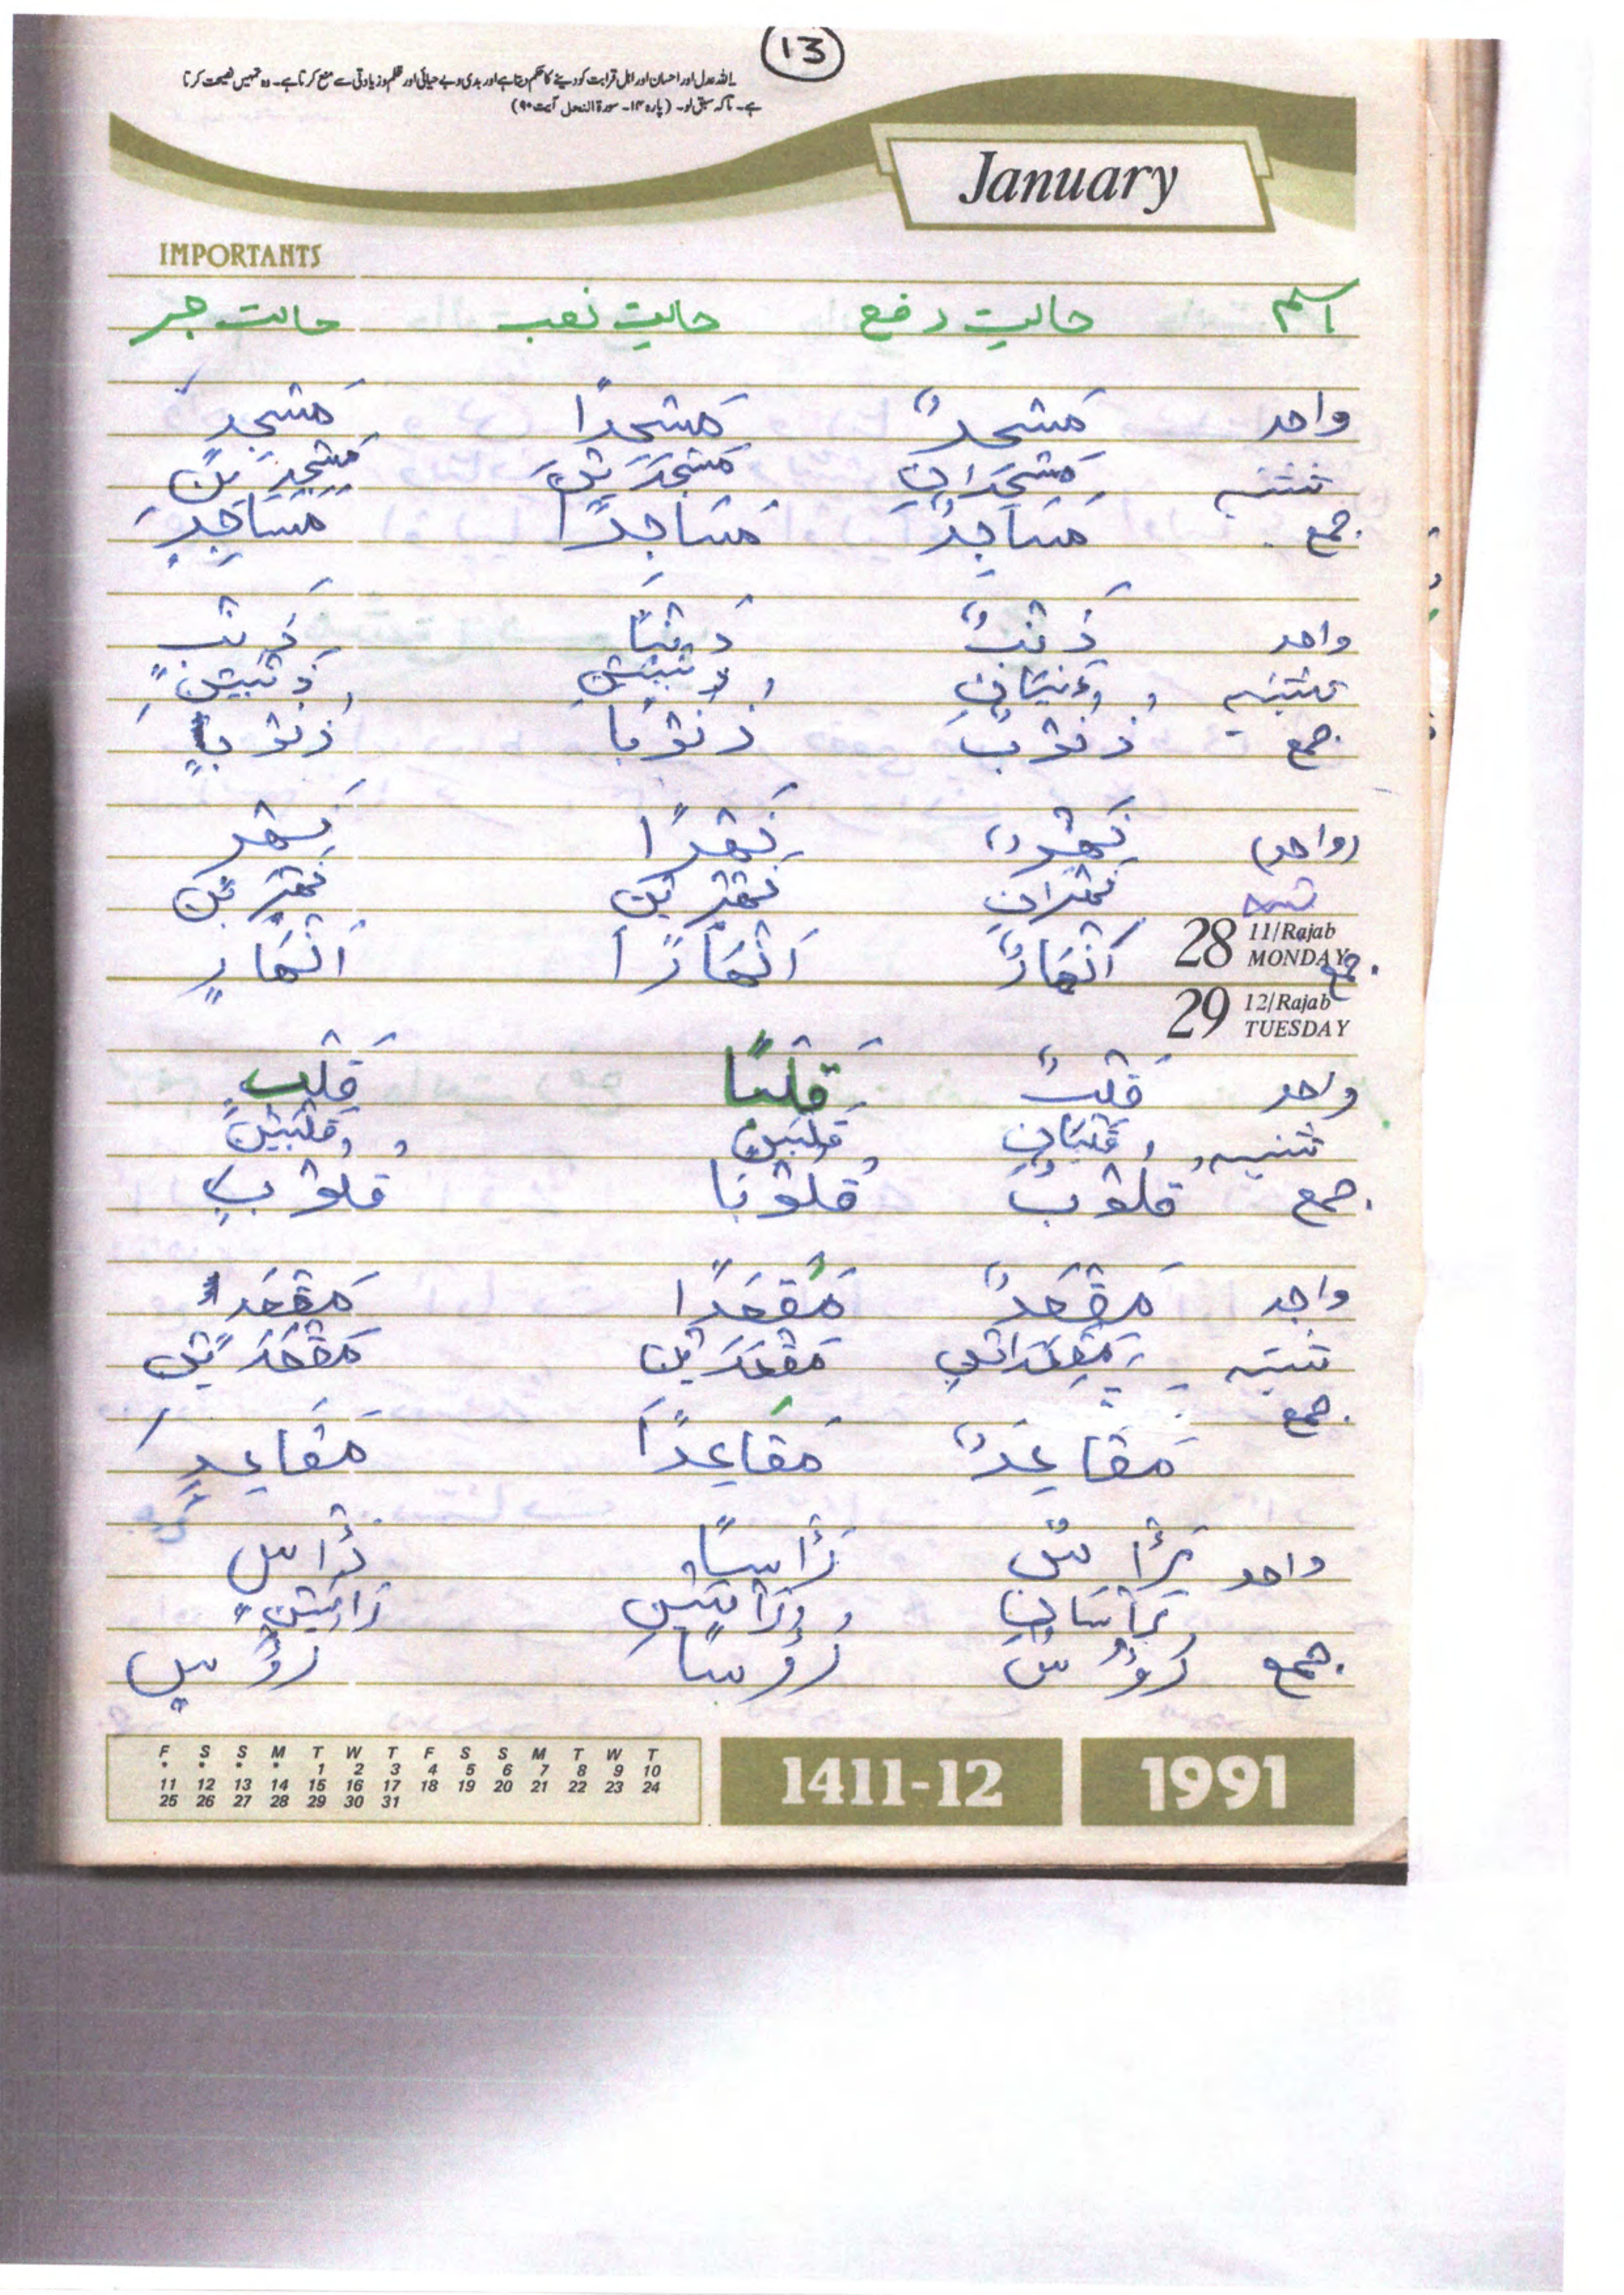 13
یاللہ عدل اور احسان اور اہل قرابت کو دینے کا حکم دیتا ہے اور بدی و بے حیائی اور ظلم و زیادتی سے منع کرتا ہے۔ وہ تمہیں نصیحت کرتا
ہے۔ تاکہ سبق لو۔ (پارہ ۱۴۔ سورۃ النحل آیت ۹۰)
January
IMPORTANTS
اسم حالت رفع حالت نصب حالت جر
واحد مَسْجِدٌ مَسْجِدًا مَسْجِدٍ
تثنیہ مَسْجِدَانِ مَسْجِدَيْنِ مَسْجِدَيْنِ
جمع مَسَاجِدٌ مَسَاجِدًا مَسَاجِدٍ
واحد ذَنْبٌ ذَنْبًا ذَنْبٍ
تثنیہ ذَنْبَانِ ذَنْبَيْنِ ذَنْبَيْنِ
جمع ذُنُوْبٌ ذُنُوْبًا ذُنُوْبٍ
(واحد) نَهْرٌ نَهْرًا نَهْرٍ
تثنیہ نَهْرَانِ نَهْرَيْنِ نَهْرَيْنِ
28 11/Rajab MONDAY
جمع اَنْهَارٌ اَنْهَارًا اَنْهَارٍ
29 12/Rajab TUESDAY
واحد قَلْبٌ قَلْبًا قَلْبٍ
تثنیہ قَلْبَانِ قَلْبَيْنِ قَلْبَيْنِ
جمع قُلُوْبٌ قُلُوْبًا قُلُوْبٍ
واحد مَقْعَدٌ مَقْعَدًا مَقْعَدٍ
تثنیہ مَقْعَدَانِ مَقْعَدَيْنِ مَقْعَدَيْنِ
جمع
مَقَاعِدٌ مَقَاعِدًا مَقَاعِدٍ
واحد رَأْسٌ رَأْسًا رَأْسٍ
رَأْسَانِ رَأْسَيْنِ رَأْسَيْنِ
جمع رُؤُسٌ رُؤُسًا رُؤُسٍ
F S S M T W T F S S M T W T
* * * * 1 2 3 4 5 6 7 8 9 10
11 12 13 14 15 16 17 18 19 20 21 22 23 24
25 26 27 28 29 30 31
1411-12
1991